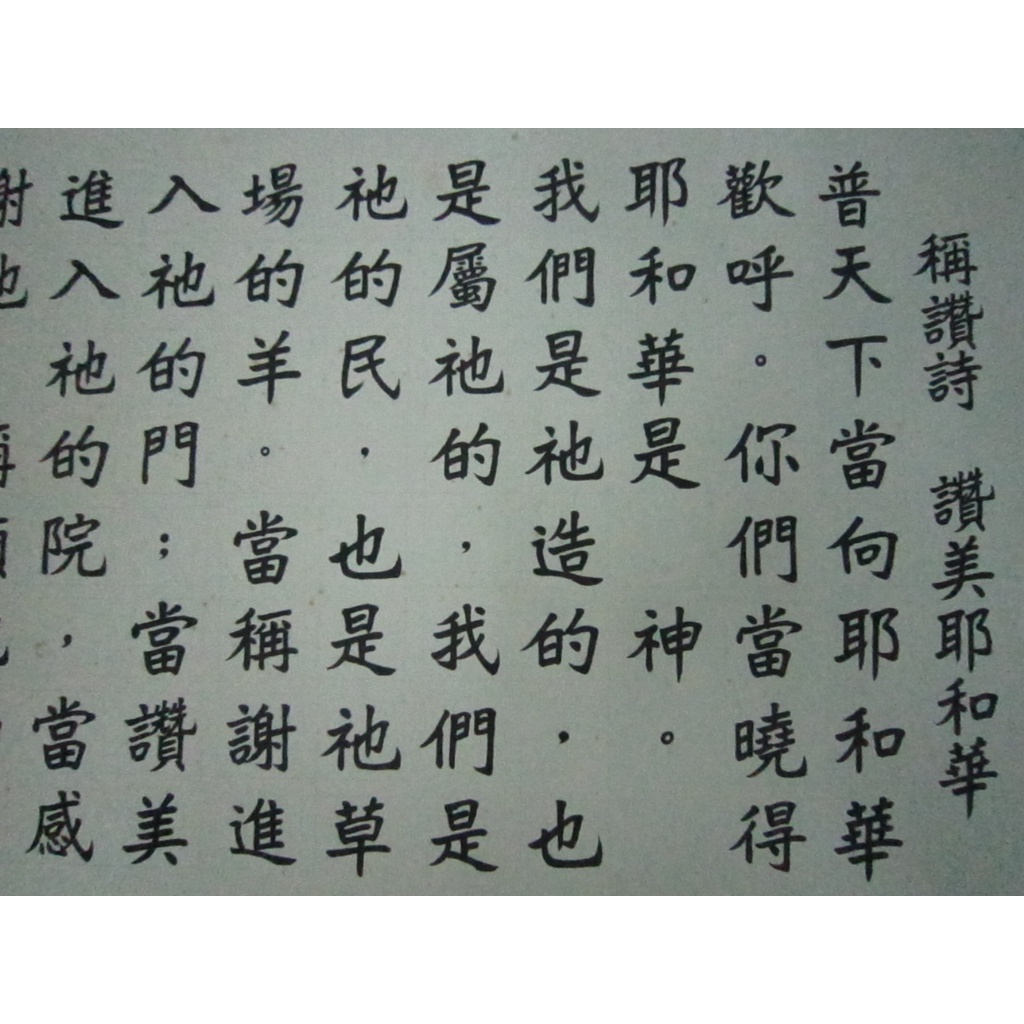 稱讚詩　讚美耶和華
普天下當向耶和華
歡呼。你們當曉得
耶和華是　神。
我們是祂造的，也
是屬祂的，我們是
祂的民．也是祂草
場的羊。當稱謝進
入祂的門；當讚美
進入祂的院，當感